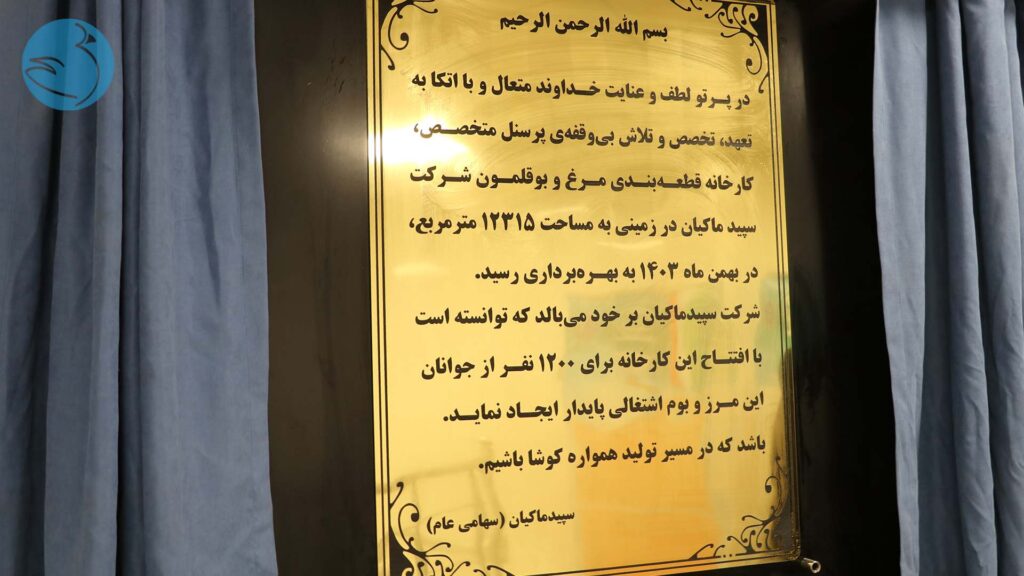 بسم الله الرحمن الرحیم
در پرتو لطف و عنایت خداوند متعال و با اتکا به
تعهد، تخصص و تلاش بی‌وقفه‌ی پرسنل متخصص،
کارخانه قطعه‌بندی مرغ و بوقلمون شرکت
سپید ماکیان در زمینی به مساحت ۱۲۳۱۵ مترمربع،
در بهمن ماه ۱۴۰۳ به بهره‌برداری رسید.
شرکت سپیدماکیان بر خود می‌بالد که توانسته است
با افتتاح این کارخانه برای ۱۲۰۰ نفر از جوانان
این مرز و بوم اشتغالی پایدار ایجاد نماید.
باشد که در مسیر تولید همواره کوشا باشیم.
سپیدماکیان (سهامی عام)